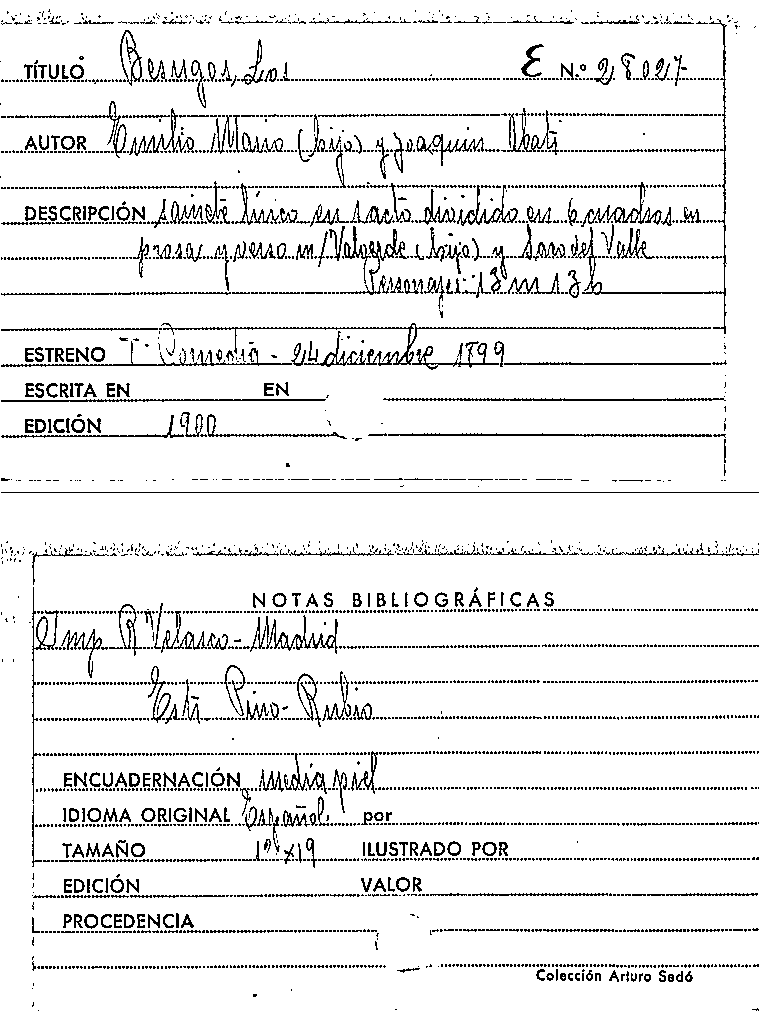 TÍTULO Besugos, Los E N.º 28027
AUTOR Emilio Mario (hijo) y Joaquin Abati
DESCRIPCIÓN sainete lírico en 1 acto dividido en 6 cuadros en
prosa y verso m/ Valverde (hijo) y del Valle
Personajes: 13 m 13 h
ESTRENO T. Comedia - 24 diciembre 1899
ESCRITA EN EN
EDICIÓN 1900
NOTAS BIBLIOGRÁFICAS
Imp R Velasco - Madrid
Estr. Pino - Rubio
ENCUADERNACIÓN media piel
IDIOMA ORIGINAL Español. por
TAMAÑO ILUSTRADO POR
EDICIÓN VALOR
PROCEDENCIA
Colección Arturo Sedó